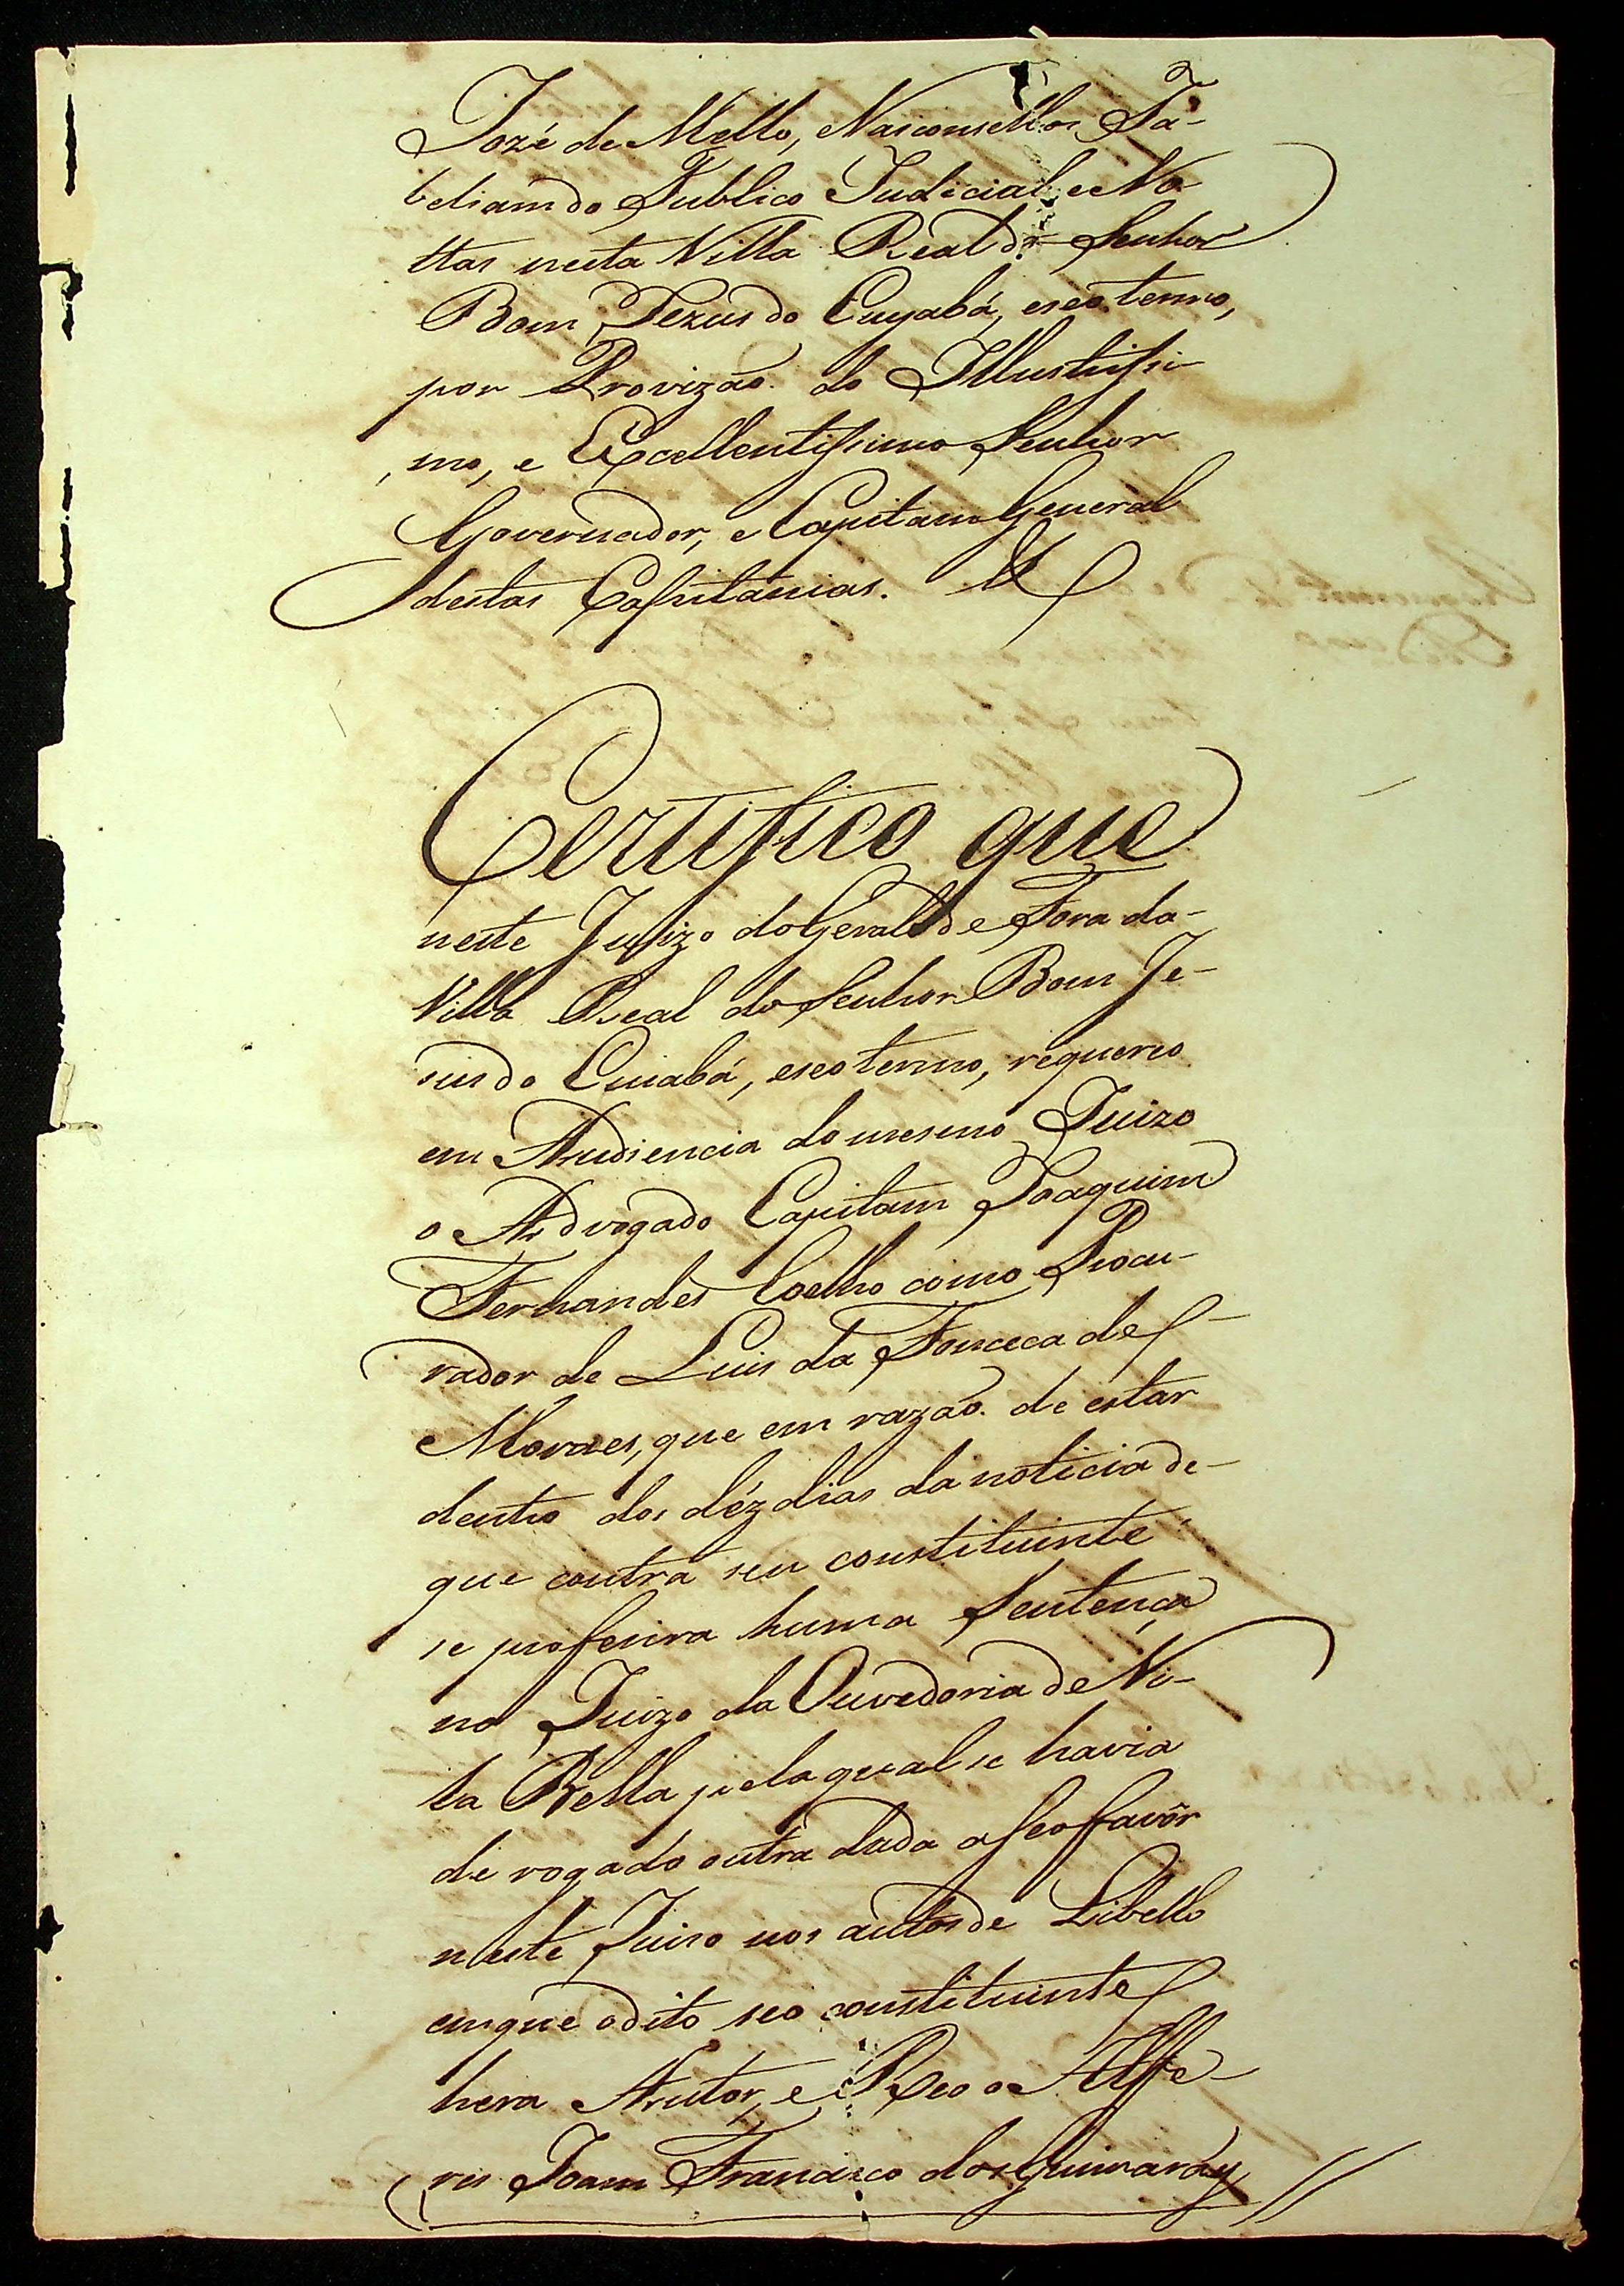 Jozé de Mello, Vasconsellos Ta-
beliam do Publico Judicial, e No
ttas nesta Villa Real do Senhor
Bom Jezus do Cuyabá, e seo termo,
por Provizaõ do Illustrissi-
mo, e Excellentissimo Senhor
Governador, e Capitam General
destas Capitanias. &
Certifico que
neste Juizo do Geral de Fora da-
Villa Real do Senhor Bom Je-
sus do Cuiabá, e seo termo, requereo
em Audiencia do mesmo Juizo
o Advogado Capitam Joaquim
Fernandes Coelho como Procu-
rador de Luis da Fonceca de
Moraes, que em razaõ de estar
dentro dos déz dias da noticia de-
que contra seu constituinte
se proferira huma Sentença
no Juizo da Ouvedoria de Vi-
la Bella pela qual se havia
derogado outra dada a seo favôr
neste Juiso nos autos de Libello
em que o dito seo constituinte
hera Autor, e Reo o Alfe-
res Joam Francisco dos Guimaraẽs //